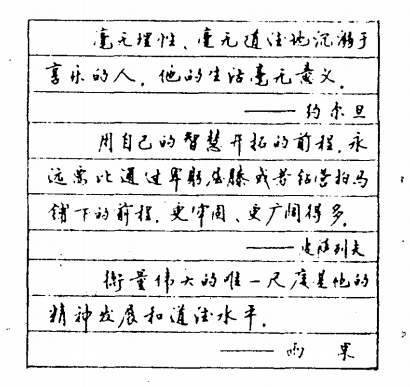 毫无理性、毫无道德地沉溺于
享乐的人，他的生活毫无意义。
——约尔旦
用自己的智慧开拓的前程，永
远要比通过卑躬屈膝或苦结营拍马
铺下的前程，更牢固、更广阔得多。
——皮萨列夫
衡量伟大的唯一尺度是他的
精神发展和道德水平。
——雨果